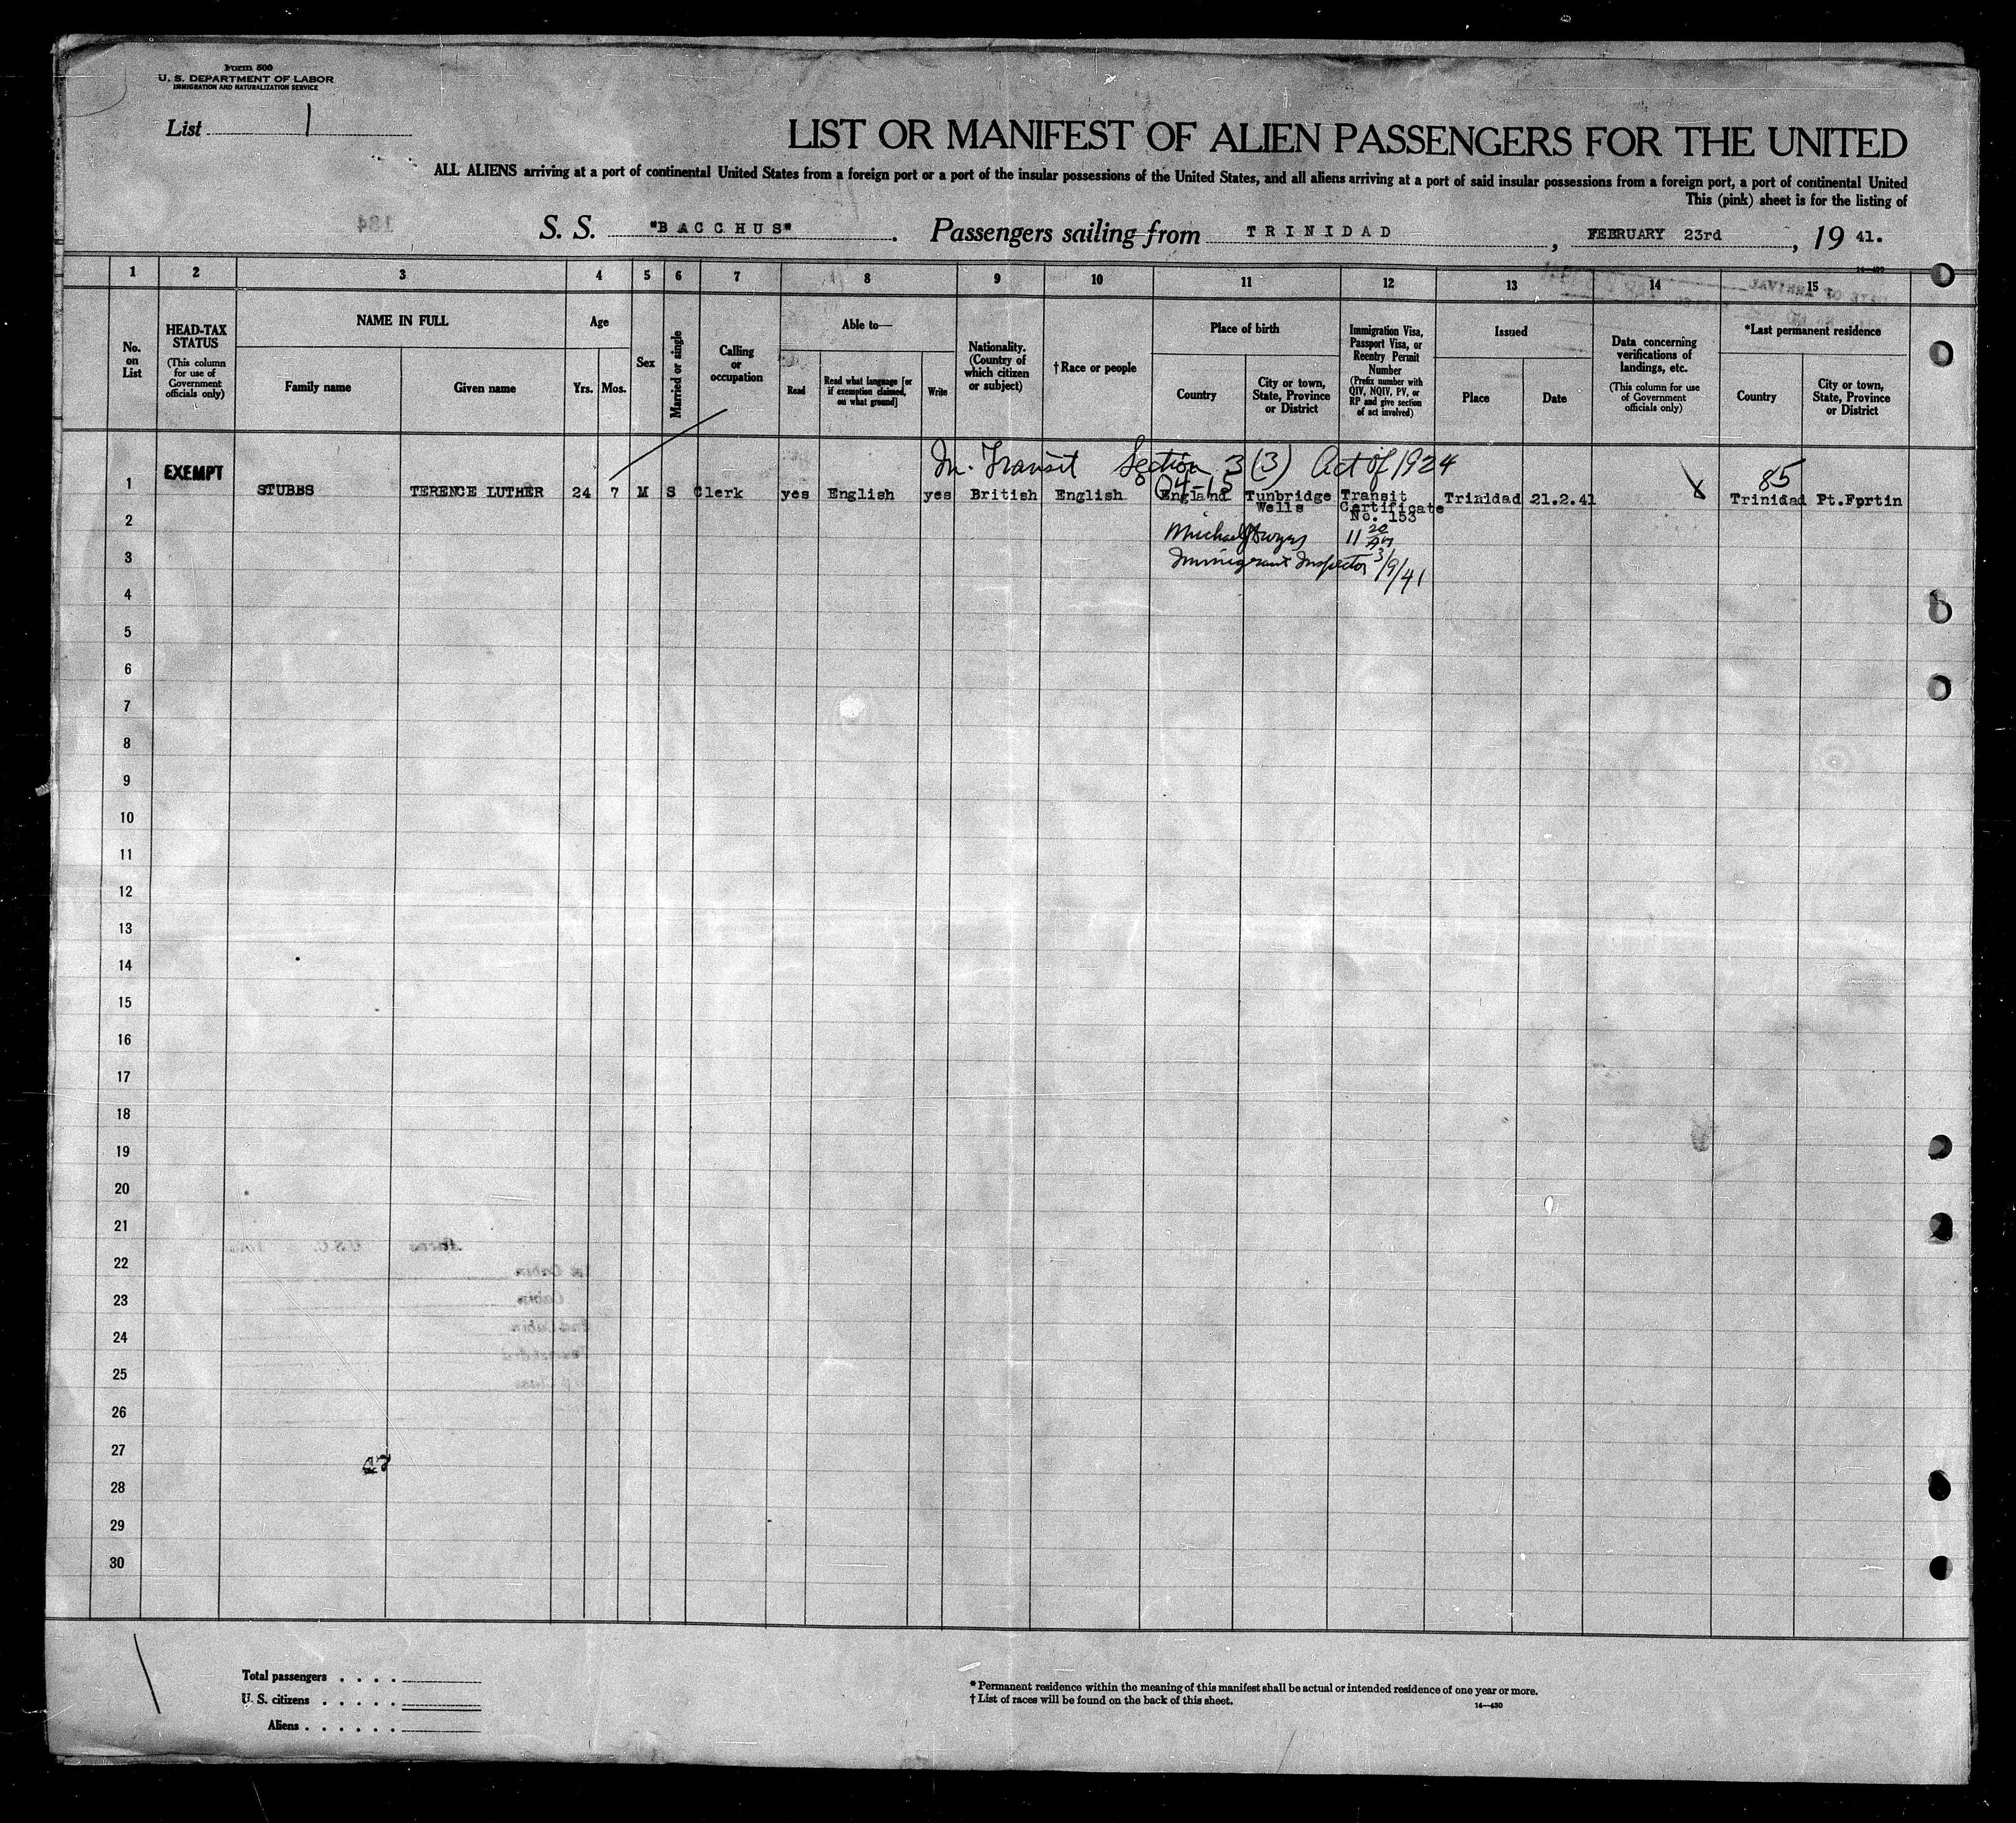 Form 500
U. S. DEPARTMENT OF LABOR
IMMIGRATION AND NATURALIZATION SERVICE
List 1
LIST OR MANIFEST OF ALIEN PASSENGERS FOR THE UNITED
ALL ALIENS arriving at a port of continental United States from a foreign port or a port of the insular possessions of the United States, and all aliens arriving at a port of said insular possessions from a foreign port, a port of continental United
This (pink) sheet is for the listing of
184
S. S. "BACCHUS". Passengers sailing from TRINIDAD, FEBRUARY 23rd, 19 41.
14—430
1 2 3 4 5 6 7 8 9 10 11 12 13 14 15
No. on List
HEAD-TAX STATUS
(This column for use of Government officials only)
NAME IN FULL
Family name
Given name
Age
Yrs. Mos.
Sex
Married or single
Calling or occupation
Able to—
Read
Read what language [or if exemption claimed, on what ground]
Write
Nationality. (Country of which citizen or subject)
†Race or people
Place of birth
Country
City or town, State, Province or District
Immigration Visa, Passport Visa, or Reentry Permit Number
(Prefix number with QIV, NQIV, PV, or RP and give section of act involved)
Issued
Place
Date
Data concerning verifications of landings, etc.
(This column for use of Government officials only)
*Last permanent residence
Country
City or town, State, Province or District
In Transit Section 3(3) Act of 1924
EXEMPT
85
1 STUBBS TERENCE LUTHER 24 7 M S Clerk yes English yes British English England Tunbridge Wells Transit Certificate No. 153 Trinidad 21.2.41 Trinidad Pt.Fortin
2
11 20 AM
3
Immigrant Inspector 3/9/41
4
5
6
7
8
9
10
11
12
13
14
15
16
17
18
19
20
21
22
23
24
25
26
27
28
29
30
Total passengers . . . .
U. S. citizens . . . . .
Aliens . . . . . .
* Permanent residence within the meaning of this manifest shall be actual or intended residence of one year or more.
† List of races will be found on the back of this sheet.
14—430